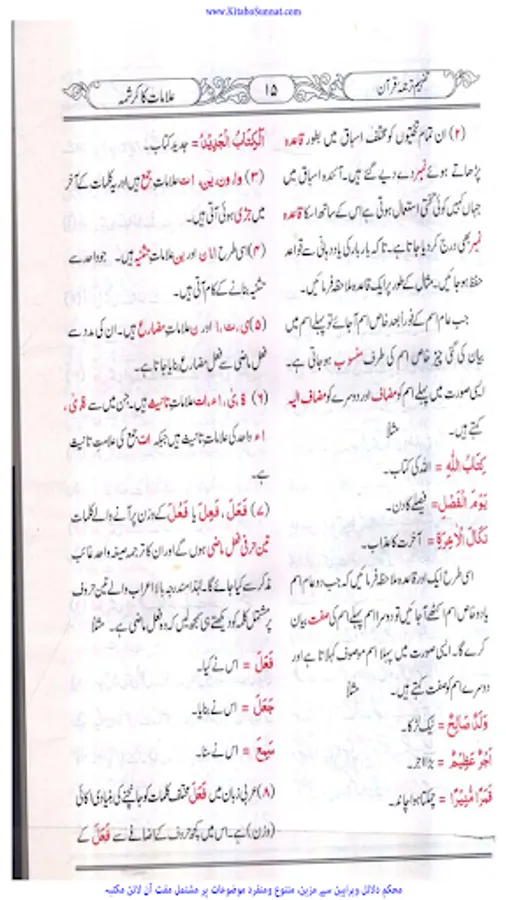 www.KitaboSunnat.com
تفہیم ترجمہ قرآن
۱۵
علامات کا کرشمہ
(۲) ان تمام تختیوں کو مختلف اسباق میں بطور قاعدہ
پڑھاتے ہوئے نمبر دے دیے گئے ہیں۔ آئندہ اسباق میں
جہاں کہیں کوئی تختی استعمال ہوتی ہے اس کے ساتھ اسکا قاعدہ
نمبر بھی درج کر دیا جاتا ہے۔ تاکہ بار بار کی یاد دہانی سے قواعد
حفظ ہو جائیں۔ مثال کے طور پر ایک قاعدہ ملاحظہ فرمائیں۔
جب عام اسم کے فوراً بعد خاص اسم آجائے تو پہلے اسم میں
بیان کی گئی چیز خاص اسم کی طرف منسوب ہو جاتی ہے۔
ایسی صورت میں پہلے اسم کو مضاف اور دوسرے کو مضاف الیہ
کہتے ہیں۔ مثلاً
كِتَابُ اللهِ = اللہ کی کتاب۔
يَوْمَ الْفَصْلِ = فیصلے کا دن۔
نَكَالَ الْآخِرَةِ = آخرت کا عذاب۔
اسی طرح ایک اور قاعدہ ملاحظہ فرمائیں کہ جب دو عام اسم
یا دو خاص اسم اکٹھے آجائیں تو دوسرا اسم پہلے اسم کی صفت بیان
کرے گا۔ ایسی صورت میں پہلا اسم موصوف کہلاتا ہے اور
دوسرے اسم کو صفت کہتے ہیں۔ مثلاً
وَلَدٌ صَالِحٌ = نیک لڑکا۔
اَجْرٌ عَظِيْمٌ = بڑا اجر۔
قَمَرًا مُّنِيْرًا = چمکتا ہوا چاند۔
اَلْكِتَابُ الْجَدِيْدُ = جدید کتاب۔
(۳) وا، ون، ین، ات علامات جمع ہیں اور یہ کلمات کے آخر
میں جڑی ہوئی آتی ہیں۔
(۴) اسی طرح ا، ان اور ین علامات تثنیہ ہیں۔ جو واحد سے
تثنیہ بنانے کے کام آتی ہیں۔
(۵) ی، ت، ا اور ن علامات مضارع ہیں۔ ان کی مدد سے
فعل ماضی سے فعل مضارع بنایا جاتا ہے۔
(۶) ة، یٰ، اء، ات علاماتِ تانیث ہیں۔ جن میں سے ة، یٰ،
اء واحد کی علامات تانیث ہیں جبکہ ات جمع کی علامت تانیث
ہے۔
(۷) فَعَلَ، فَعِلَ یا فَعُلَ کے وزن پر آنے والے کلمات
تین حرفی فعل ماضی ہوں گے اور ان کا ترجمہ صیغہ واحد غائب
مذکر سے کیا جائے گا۔ لہٰذا مندرجہ بالا اعراب والے تین حروف
پر مشتمل کلمہ کو دیکھتے ہی سمجھ لیں کہ وہ فعل ماضی ہے۔ مثلاً
فَعَلَ = اس نے کیا۔
جَعَلَ = اس نے بنایا۔
سَمِعَ = اس نے سنا۔
(۸) عربی زبان میں فَعَلَ مختلف کلمات کو جانچنے کی بنیادی اکائی
(وزن) ہے۔ اس میں کچھ حروف کے اضافے سے فَعَلَ کے
محکم دلائل وبراہین سے مزین، متنوع ومنفرد موضوعات پر مشتمل مفت آن لائن مکتبہ